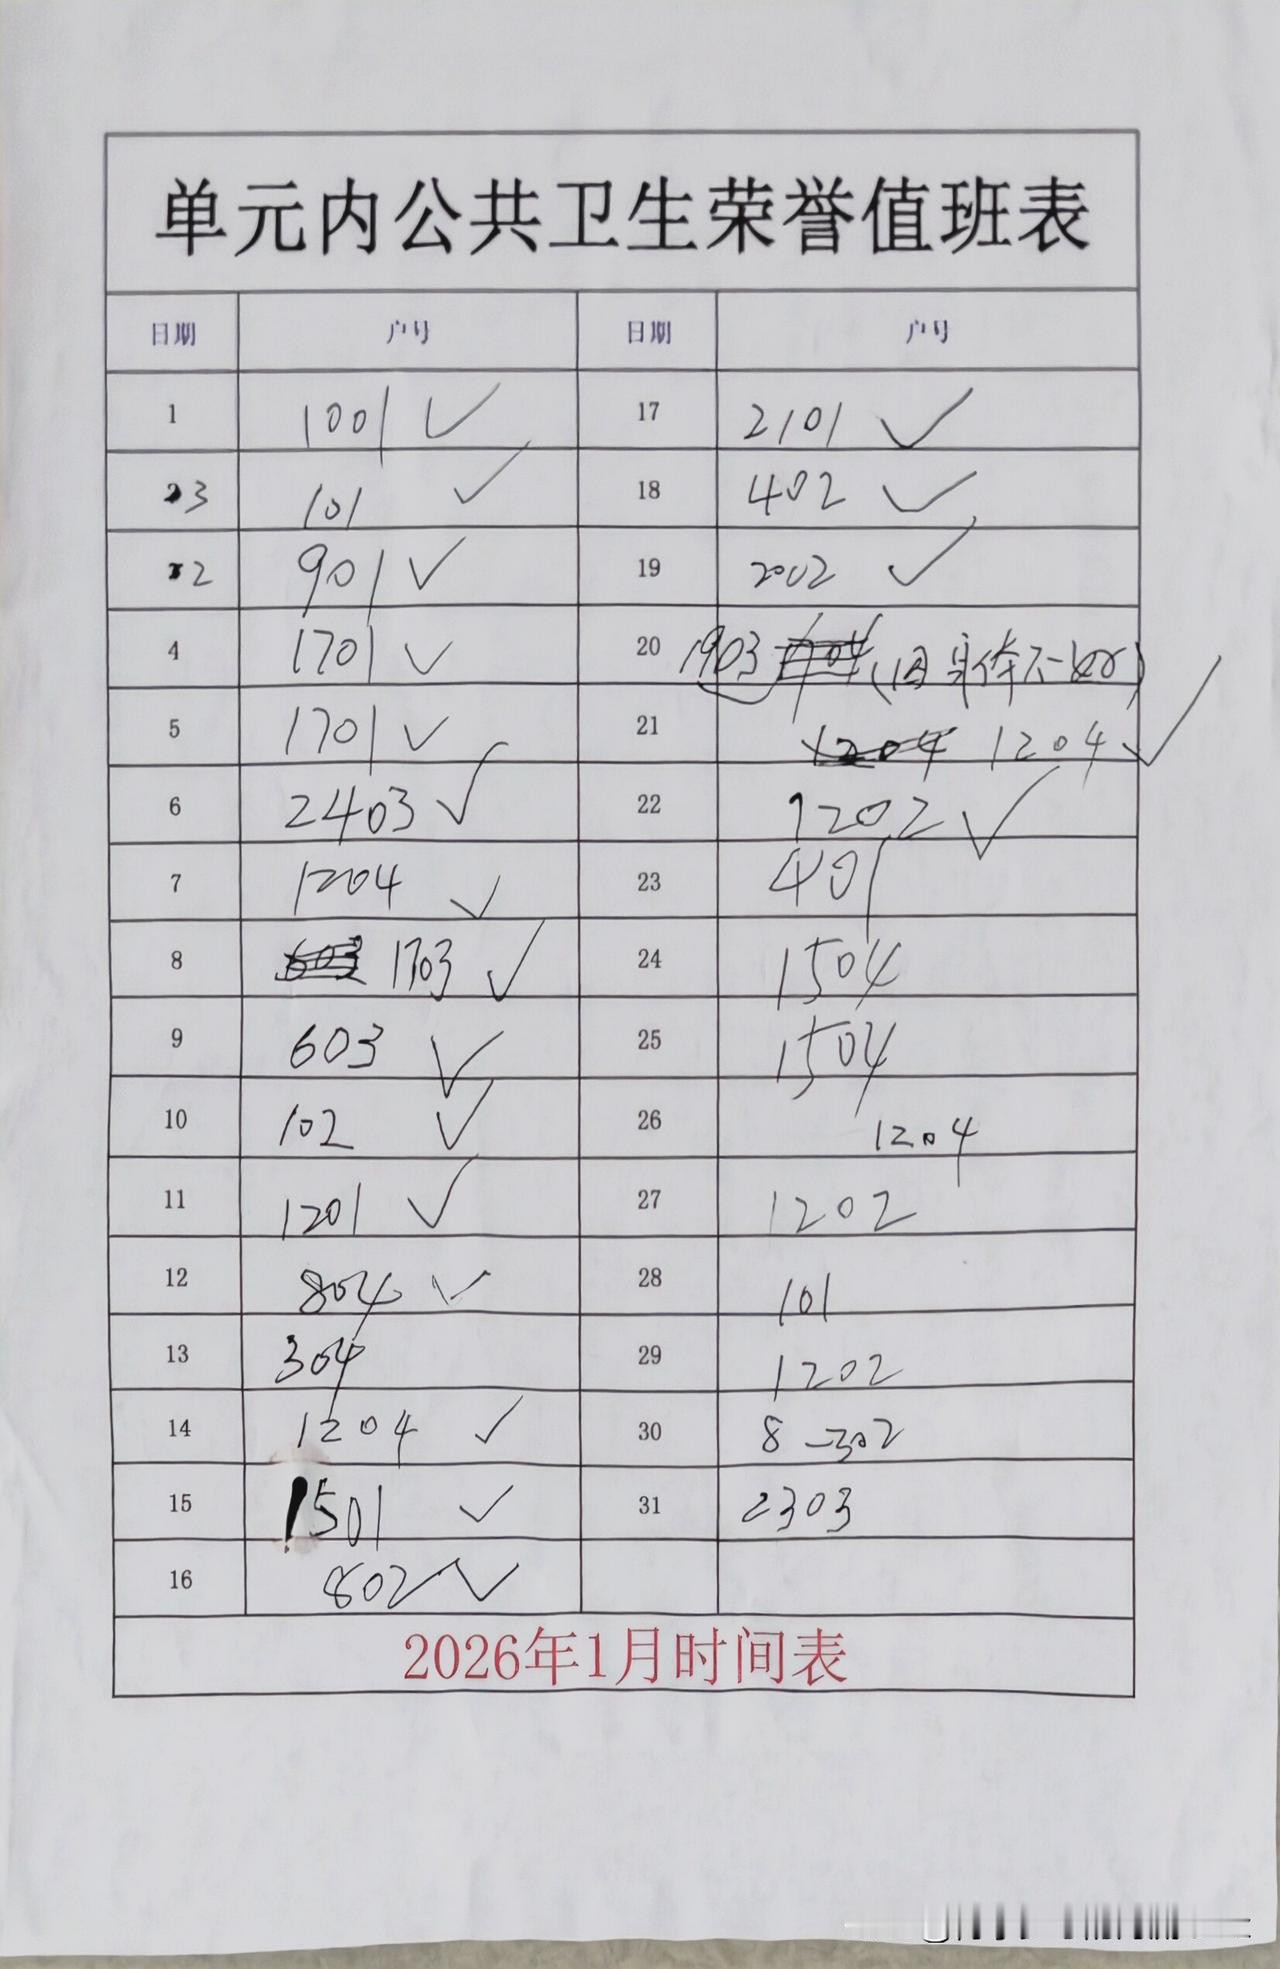 单元内公共卫生荣誉值班表
日期 户号 日期 户号
1 1001 ✓ 17 2101 ✓
3 101 ✓ 18 402 ✓
2 901 ✓ 19 2002 ✓
4 1701 ✓ 20 1903 (因身体不好)
5 1701 ✓ 21 1204 1204 ✓
6 2403 ✓ 22 1202 ✓
7 1204 ✓ 23 401
8 603 1703 ✓ 24 1504
9 603 ✓ 25 1504
10 102 ✓ 26 1204
11 1201 ✓ 27 1202
12 804 ✓ 28 101
13 304 29 1202
14 1204 ✓ 30 8-302
15 1501 ✓ 31 2303
16 802 ✓
2026年1月时间表